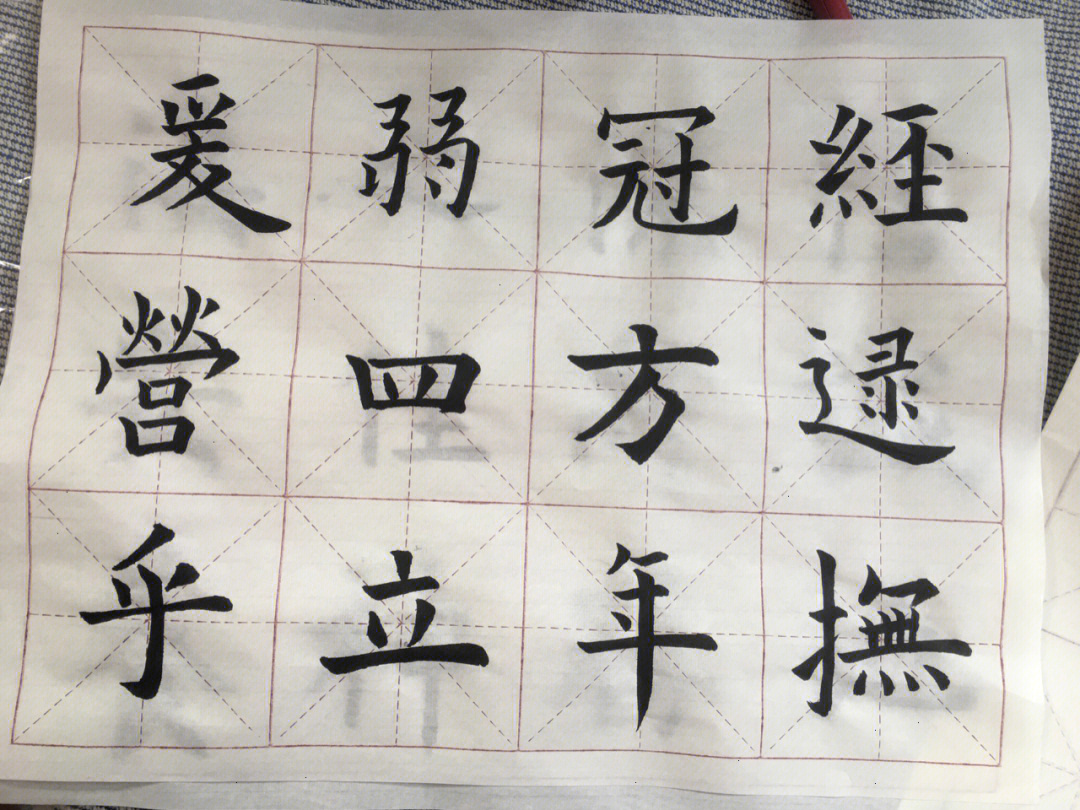 爰弱冠經
營四方逮
乎立年撫